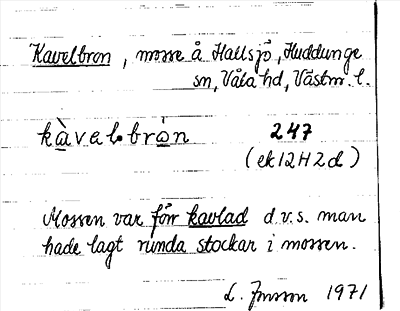 Kavelbron, mosse å Hallsjö, Huddunge
sn, Våla hd, Västm. l.
kàvel•brón 247
(ek 12 H 2 d)
Mossen var förr kavlad d.v.s. man
hade lagt runda stockar i mossen.
L. Jonsson 1971